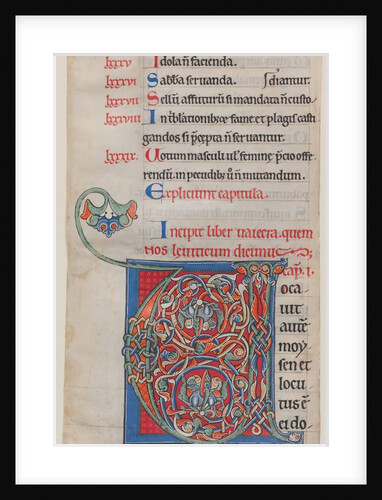 lxxxv Idola n̄ facienda.
lxxxvi Sabba seruanda. ſdiantur.
lxxxvii Sellū affuturū si mandata n̄ custo
lxxxviii In t̄blationib; fame et plagis casti
gandos si p̄cepta n̄ seruantur.
lxxxix. Uotum masculi ul' femine p̄cio offe
rendū. in pecudib; ū n̄ mutandum.
Expliciunt capitula.
Incipit liber uaiecra. quem
nos leuiticum dicimus
cap̄. i.
oca
uit
autē
moy
sen et
locu
tus ē
ei do